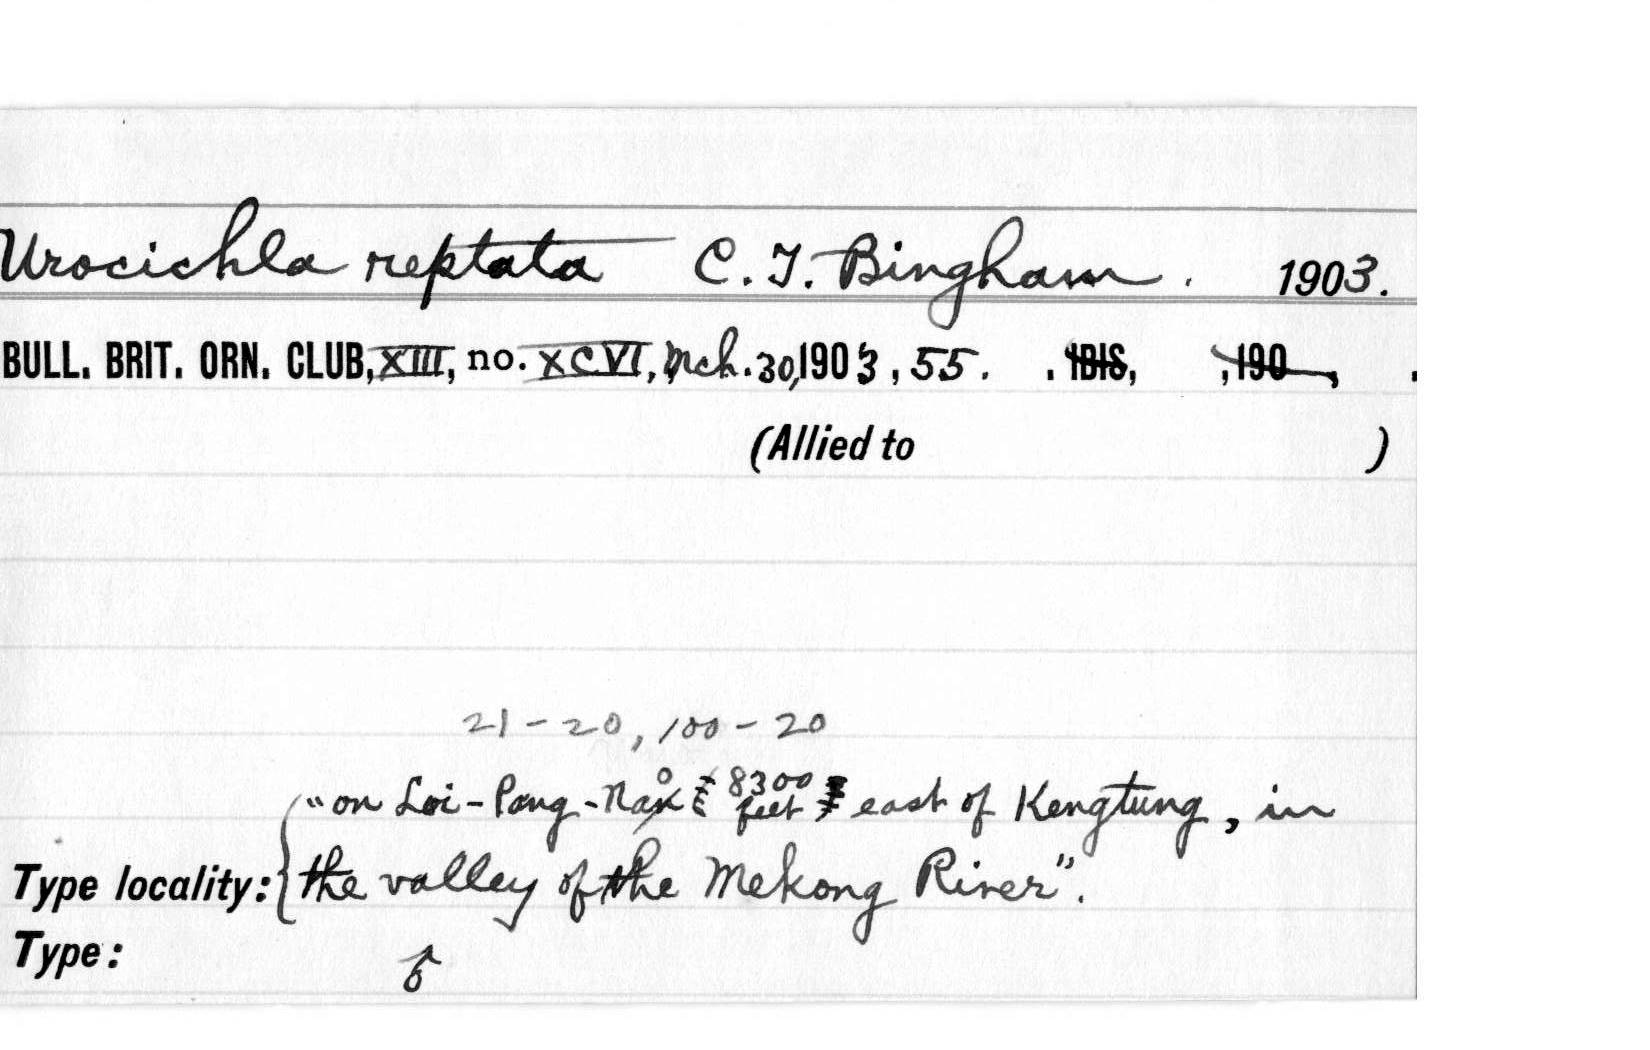 Urocichla reptata C. T. Bingham. 1903.
BULL. BRIT. ORN. CLUB, XIII, no. XCVI, Mch. 30, 1903, 55. . IBIS, , 190 , .
(Allied to )
21-20, 100-20
"on Loi-Pang-Nan [8300 feet] east of Kengtung, in
Type locality: the valley of the Mekong River".
Type: ♂